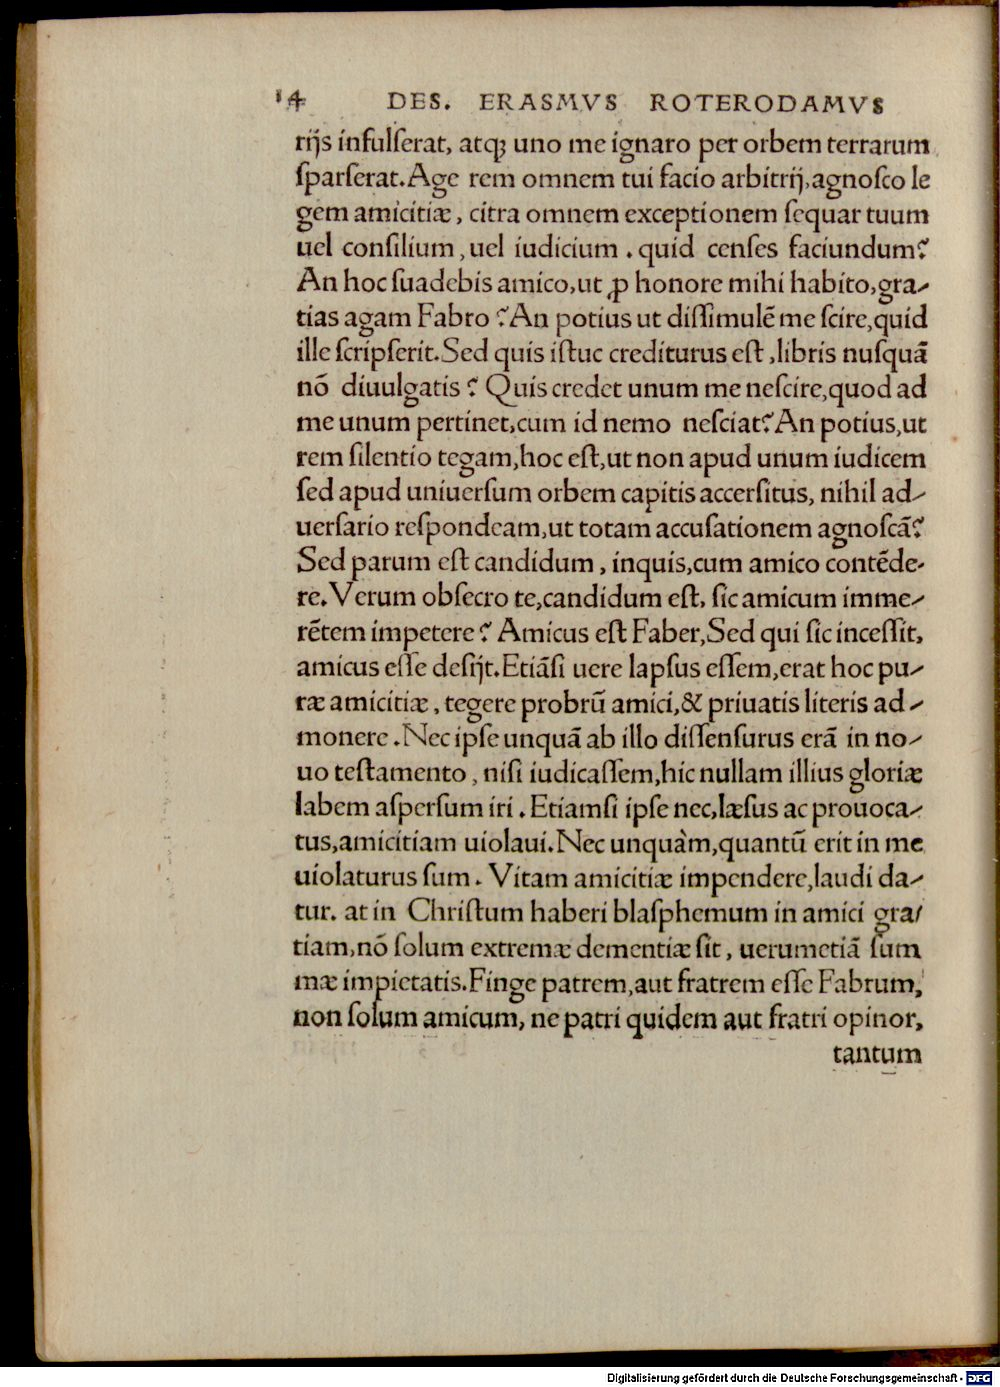 14 DES. ERASMVS ROTERODAMVS
rijs infulſerat, atqꝫ uno me ignaro per orbem terrarum
ſparſerat. Age rem omnem tui facio arbitrij, agnoſco le
gem amicitiæ, citra omnem exceptionem ſequar tuum
uel conſilium, uel iudicium. quid cenſes faciundum?
An hoc ſuadebis amico, ut ꝓ honore mihi habito, gra-
tias agam Fabro? An potius ut diſſimulē me ſcire, quid
ille ſcripſerit. Sed quis iſtuc crediturus eſt, libris nuſquā
nō diuulgatis? Quis credet unum me neſcire, quod ad
me unum pertinet, cum id nemo neſciat? An potius, ut
rem ſilentio tegam, hoc eſt, ut non apud unum iudicem
ſed apud uniuerſum orbem capitis accerſitus, nihil ad-
uerſario reſpondeam, ut totam accuſationem agnoſcā?
Sed parum eſt candidum, inquis, cum amico contēde-
re. Verum obſecro te, candidum eſt, ſic amicum imme-
rētem impetere? Amicus eſt Faber, Sed qui ſic inceſſit,
amicus eſſe deſijt. Etiāſi uere lapſus eſſem, erat hoc pu-
ræ amicitiæ, tegere probrū amici, & priuatis literis ad-
monere. Nec ipſe unquā ab illo diſſenſurus erā in no-
uo teſtamento, niſi iudicaſſem, hic nullam illius gloriæ
labem aſperſum iri. Etiamſi ipſe nec, læſus ac prouoca-
tus, amicitiam uiolaui. Nec unquàm, quantū erit in me
uiolaturus ſum. Vitam amicitiæ impendere, laudi da-
tur. at in Chriſtum haberi blaſphemum in amici gra/
tiam, nō ſolum extremæ dementiæ ſit, uerumetiā ſum
mæ impietatis. Finge patrem, aut fratrem eſſe Fabrum,
non ſolum amicum, ne patri quidem aut fratri opinor,
tantum
Digitalisierung gefördert durch die Deutsche Forschungsgemeinschaft - DFG